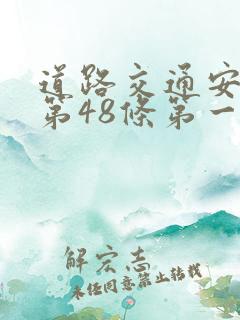 道路交通安
第48條第一
解宏志
未经同意禁止转载